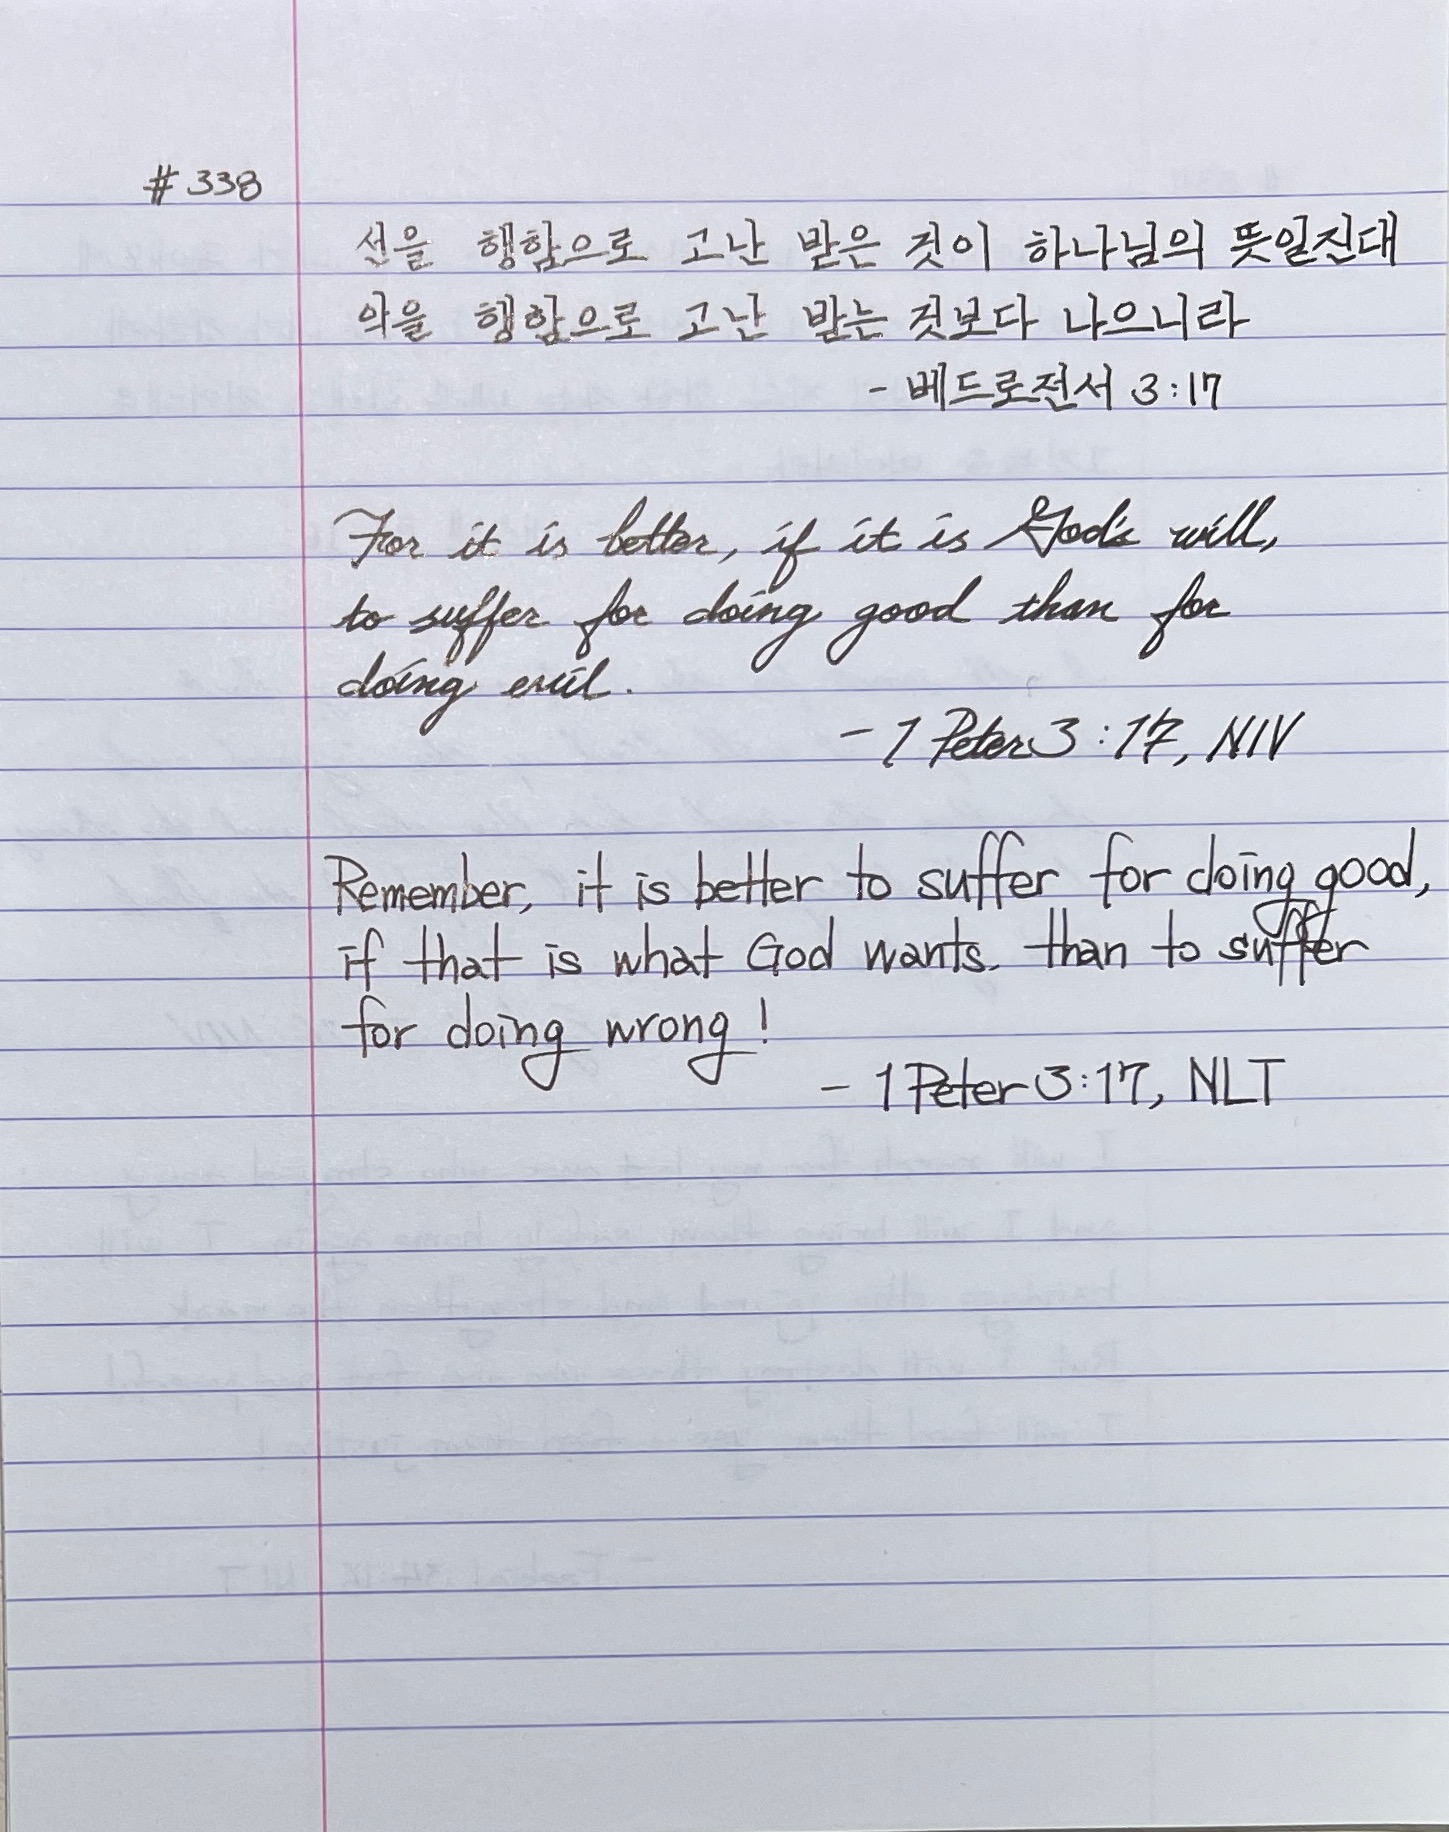 #338
선을 행함으로 고난 받은 것이 하나님의 뜻일진대
악을 행함으로 고난 받는 것보다 나으니라
- 베드로전서 3:17
For it is better, if it is God's will,
to suffer for doing good than for
doing evil.
- 1 Peter 3:17, NIV
Remember, it is better to suffer for doing good,
if that is what God wants, than to suffer
for doing wrong!
- 1 Peter 3:17, NLT